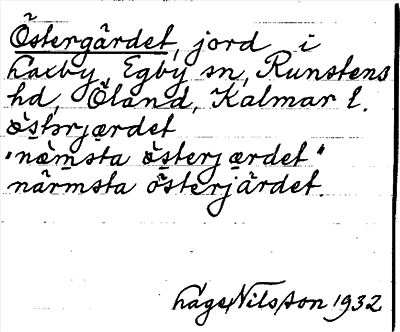 Östergärdet, jord i
Laxby, Egby sn, Runstens
hd, Öland, Kalmar l.
östərjærdet
"næmsta österjærdet"
närmsta österjärdet.
Låge Nilsson 1932